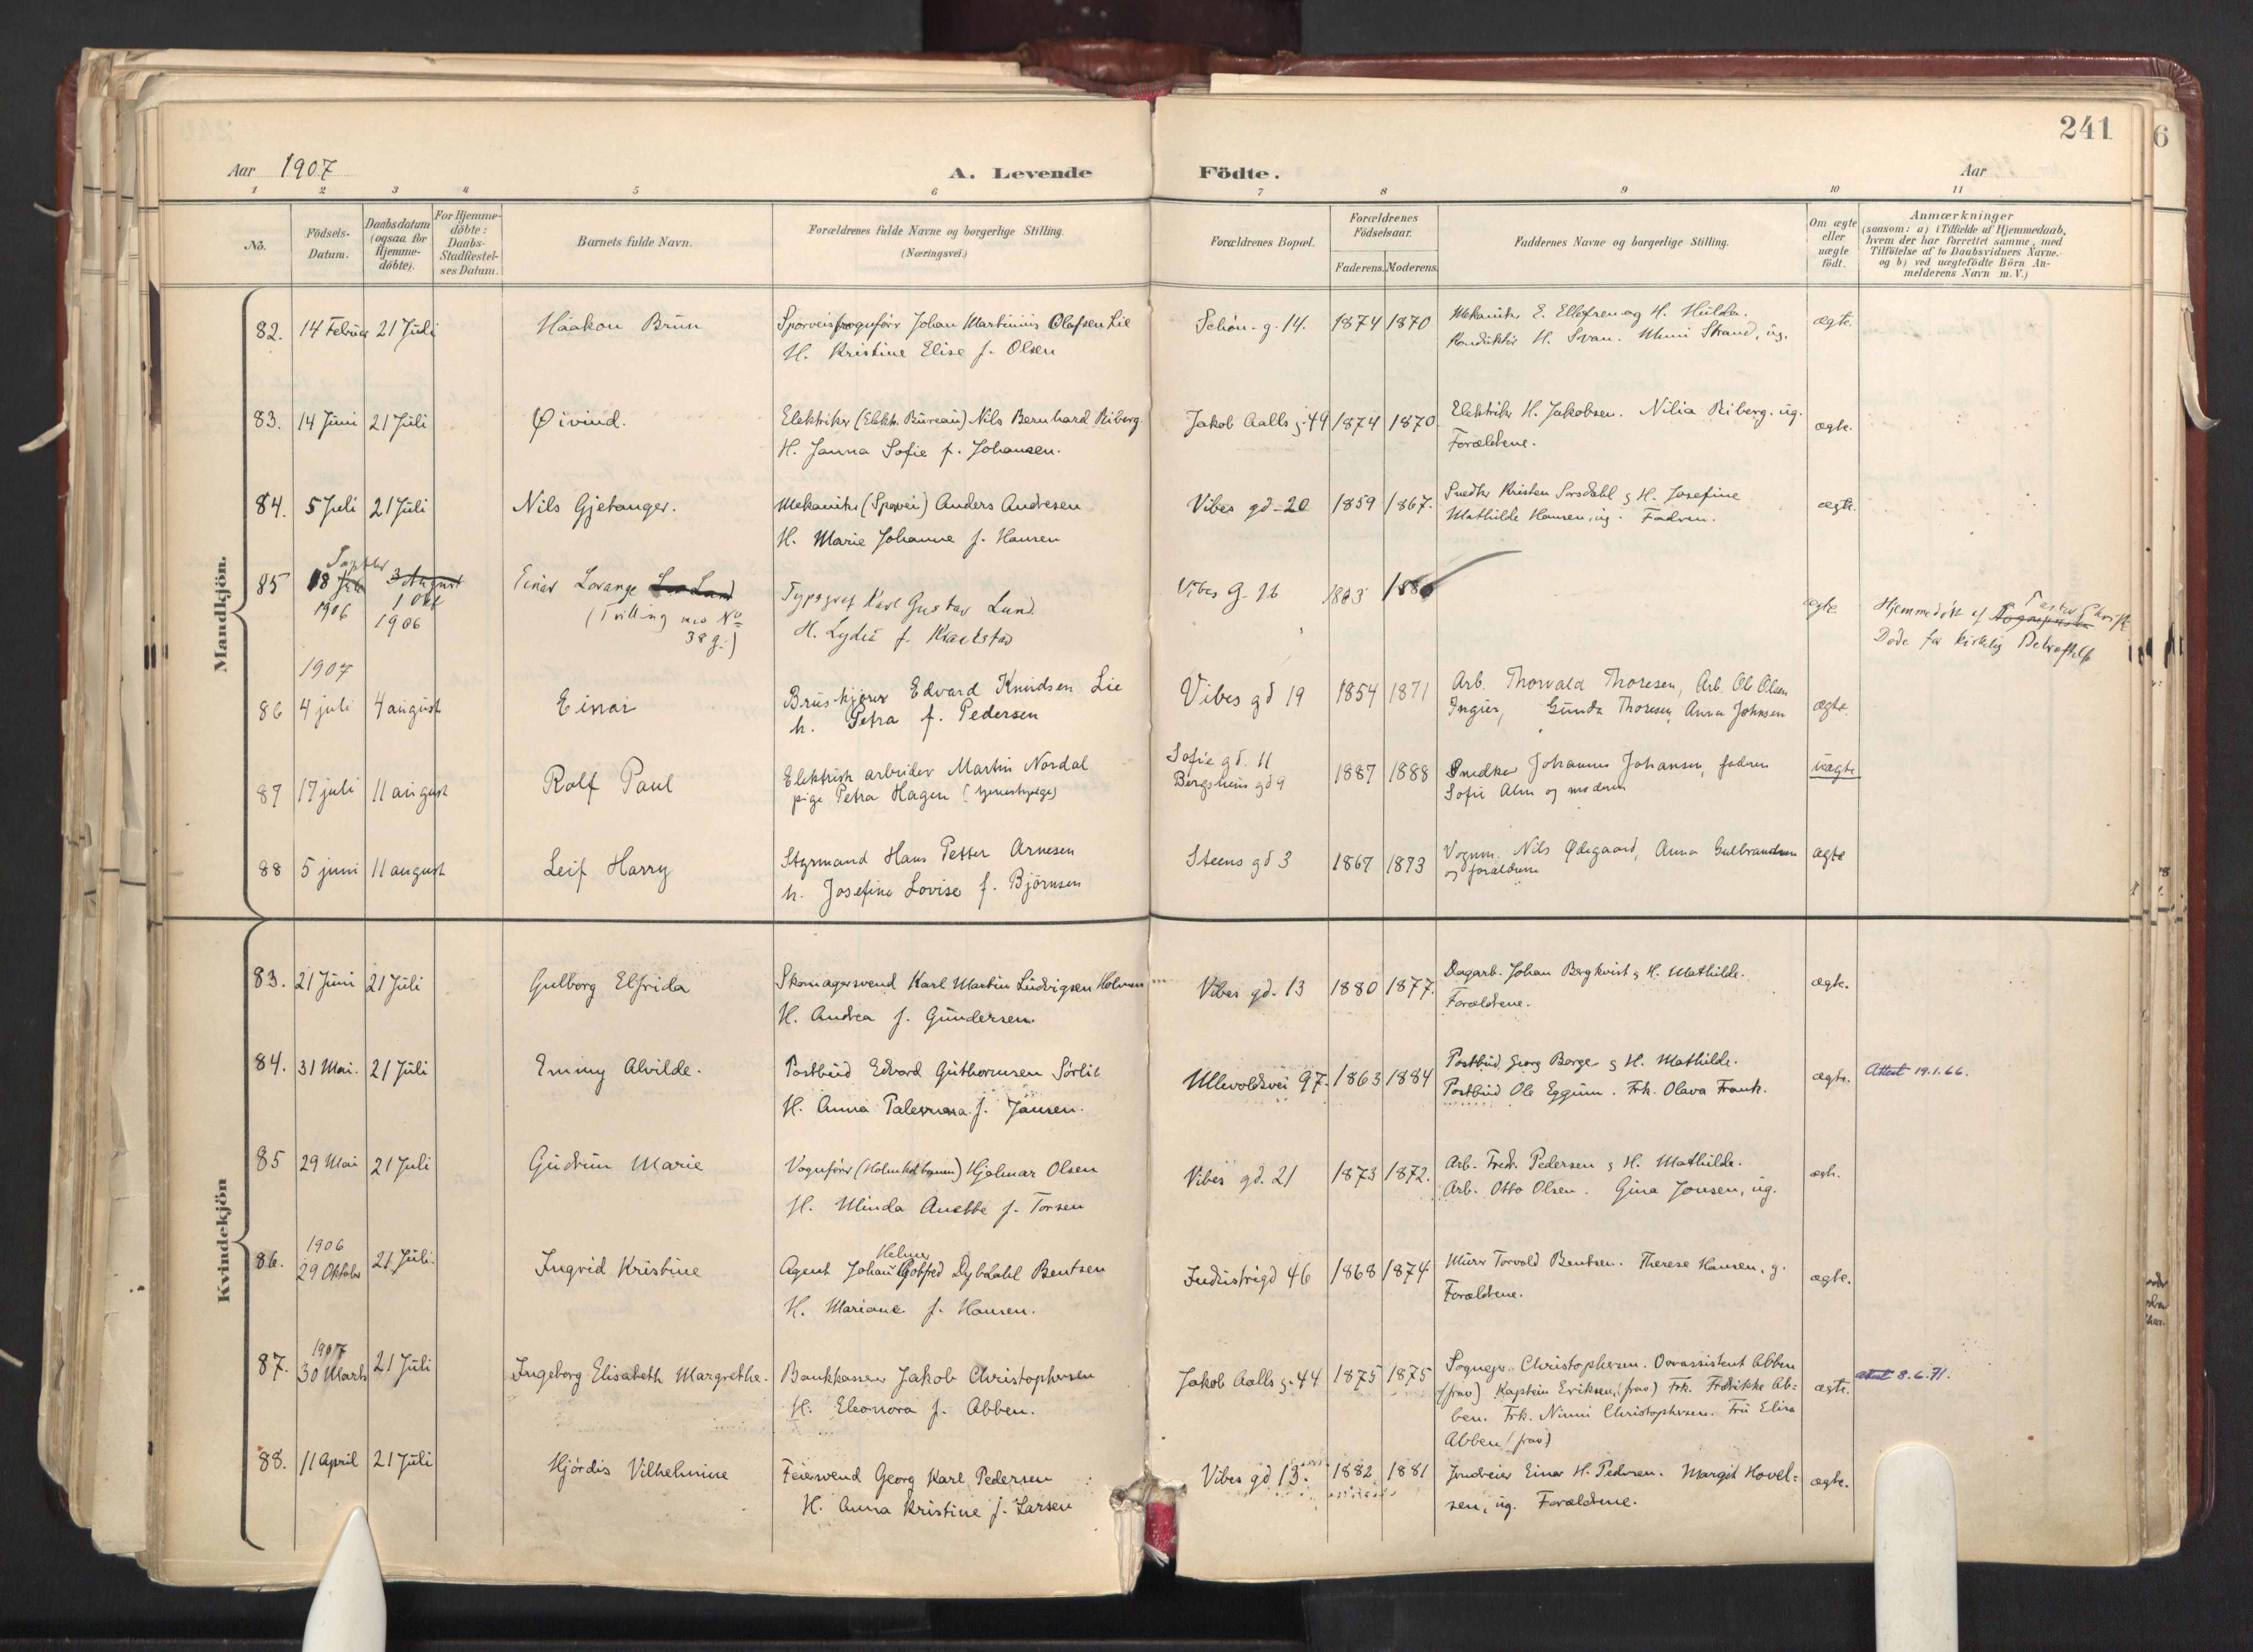 241
6
Aar 1907 A. Levende Födte. Aar
1 2 3 4 5 6 7 8 9 10 11
No.
Födsels-
Datum.
Daabsdatum
(ogsaa for
Hjemme-
döbte).
For Hjemme-
döbte:
Daabs-
Stadfæstel-
ses Datum.
Barnets fulde Navn.
Forældrenes fulde Navne og borgerlige Stilling.
(Næringsvei.)
Forældrenes Bopæl.
Forældrenes
Födselsaar.
Faderens. Moderens.
Faddernes Navne og borgerlige Stilling.
Om ægte
eller
uægte
födt.
Anmærkninger
(saasom: a) i Tilfælde af Hjemmedaab,
hvem der har forrettet samme, med
Tilföielse af to Daabsvidners Navne.
og b) ved uægtefödte Börn An-
melderens Navn m. V.)
Mandkjön.
82. 14 Februar 21 Juli Haakon Brun Sporveisvognförer Johan Martinius Olafsen Lie
H. Kristine Elise f. Olsen
Schön. g. 14. 1874 1870 Mekaniker E. Ellefsen og H. Hulda.
Konduktör H. Svan. Mimi Strand, ug. ægte.
83. 14 Juni 21 Juli Øivind. Elektriker (Elektr. Bureau) Nils Bernhard Riberg
H. Janna Sofie f. Johansen.
Jakob Aalls g. 49 1874 1870 Elektriker H. Jakobsen. Nilia Riberg. ug.
Forældrene. ægte.
84. 5 Juli 21 Juli Nils Gjetanger. Mekaniker (Sporvei) Anders Andresen
H. Marie Johanne f. Hansen
Vibes gd. 20 1859 1867. Snedker Kristen Sorsdahl & H. Josefine
Mathilde Hansen, ug. Fadren. ægte.
85 18 Septbr
1906
3 August
1 Okt
1906
Einar Lorange Lund
(Tvilling med No
38 g.)
Typograf Karl Gustav Lund.
H. Lydia f.
Vibes G. 26 1883 1880 ægte
Hjemmedöbt af Pastor
Döde för kirkelig Bekræftelse
1907
86 4 juli 4 august Einar Bruskjører Edvard Knudsen Lie
h. Petra f. Pedersen
Vibes gd 19 1854 1871 Arb. Thorvald Thoresen, Arb. Ole Olsen
Ingier, Gunda Thoresen, Anna Johnsen ægte.
87 17 juli 11 august Rolf Paul Elektrisk arbeider Martin Nordal
pige Petra Hagen (tjenestepige)
Sofie gd. 11
Bergsliens gd 9
1887 1888 Snedker Johannes Johansen, fadren
Sofie Alm og moderen uægte
88 5 juni 11 august Leif Harry Styrmand Hans Petter Arnesen
h. Josefine Lovise f. Björnsen
Steens gd 3 1867 1873 Vognm. Nils Ødegaard, Anna Gulbrandsen
og forældrene ægte
Kvindekjön
83. 21 Juni 21 Juli Gulborg Elfrida Skomagersvend Karl Martin Ludvigsen Holmen
H. Andrea f. Gundersen.
Vibes gd. 13 1880 1877. Dagarb. Johan Bergkvist & H. Mathilde.
Forældrene. ægte.
84. 31 Mai. 21 Juli Emmy Alvilde. Postbud Edvard Guthormsen Sörlie
H. Anna f. Jansen.
Ullevoldsvei 97. 1863 1884 Postbud Georg Borge & H. Mathilde.
Postbud Ole Eggum. Frk. Olava Frank. ægte. Attest 19.1.66.
85 29 Mai 21 Juli Gudrun Marie Vognförer (Holmenkolbanen) Hjalmar Olsen
H. Minda Anette f. Torsen
Vibes gd. 21 1873 1872. Arb. Fredr. Pedersen & H. Mathilde.
Arb. Otto Olsen. Gina Jonsen, ug. ægte.
86. 1906
29 Oktober 21 Juli. Ingrid Kristine Agent Johan Helmer Gotfred Dybdahl Bentsen
H. Mariane f. Hansen.
Industrigd 46 1868 1874 Murer Torvald Bentsen. Therese Hansen, g.
Forældrene. ægte.
87. 1907
30 Marts 21 Juli Ingeborg Elisabeth Margrethe. Bankkasserer Jakob Christophersen
H. Eleonora f. Abben.
Jakob Aalls g. 44 1875 1875 Sognepr. Christophersen. Overassistent Abben
(frav) Kaptein Eriksen, (frav) Frk. Fredrikke Ab=
ben. Frk. Ninni Christophersen. Fru Elisa
Abben (frav) ægte. attest 8.6.71.
88. 11 April 21 Juli Hjördis Vilhelmine Feiersvend Georg Karl Pedersen
H. Anna Kristine f. Larsen
Vibes gd 13. 1882 1881 Einar H. Pedersen. Margit Hovel=
sen, ug. Forældrene. ægte.